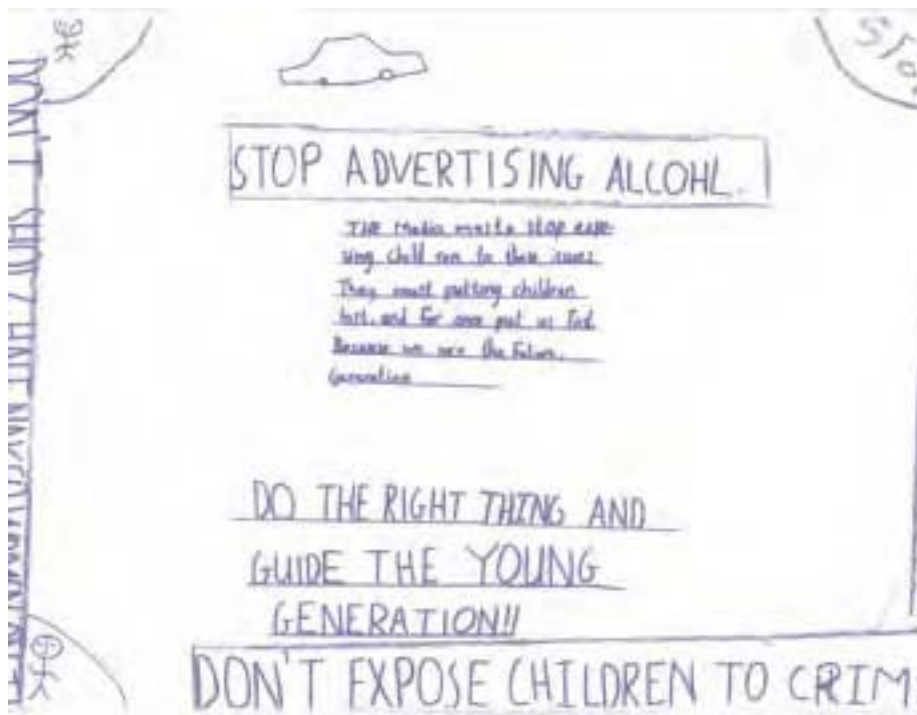 STOP ADVERTISING ALCOHL.
THE Media must stop expo-
sing child ren to these issues
They must putting children
last, and for once put us First.
Because we are the Future.
Generation
DO THE RIGHT THING AND
GUIDE THE YOUNG
GENERATION!!
DON'T EXPOSE CHILDREN TO CRIM
DON'T